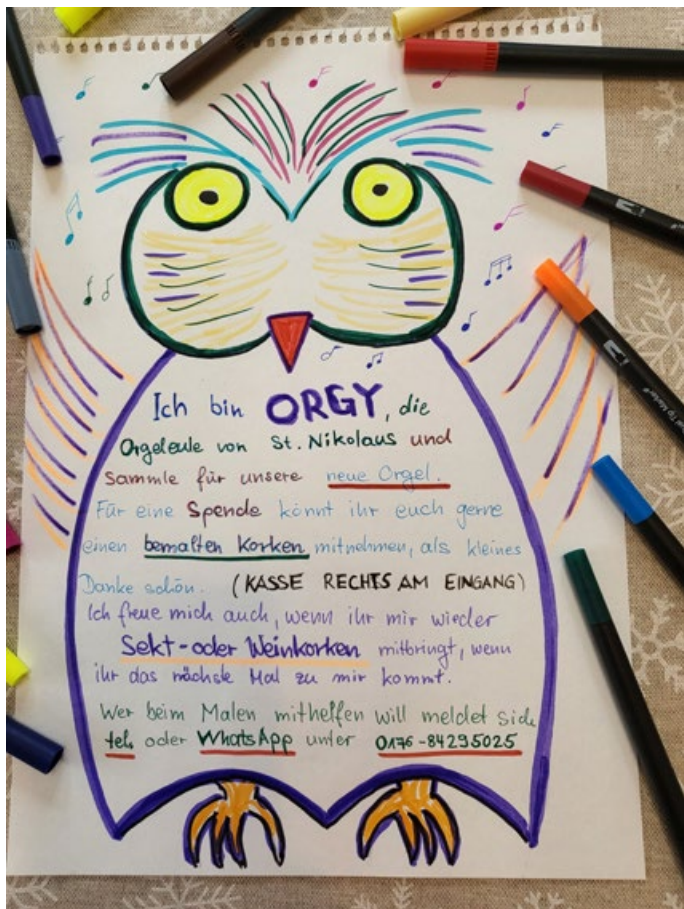 Ich bin ORGY, die
Orgeleule von St. Nikolaus und
sammle für unsere neue Orgel.
Für eine Spende könnt ihr euch gerne
einen bemalten Korken mitnehmen, als kleines
Danke schön. (KASSE RECHTS AM EINGANG)
Ich freue mich auch, wenn ihr mir wieder
Sekt-oder Weinkorken mitbringt, wenn
ihr das nächste Mal zu mir kommt.
Wer beim Malen mithelfen will meldet sich
tel. oder WhatsApp unter 0176-84295025